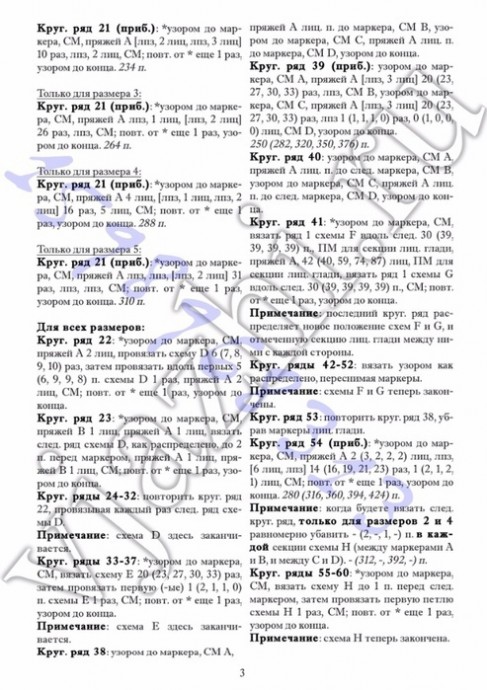 Круг. ряд 21 (приб.): *узором до мар-
кера, СМ, пряжей А [лпз, 2 лиц, лпз, 3 лиц]
10 раз, лпз, 2 лиц, СМ; повт. от * еще 1 раз,
узором до конца. 234 п.
Только для размера 3:
Круг. ряд 21 (приб.): *узором до марке-
ра, СМ, пряжей А лпз, 1 лиц, [лпз, 2 лиц]
26 раз, лпз, СМ; повт. от * еще 1 раз, узо-
ром до конца. 264 п.
Только для размера 4:
Круг. ряд 21 (приб.): *узором до марке-
ра, СМ, пряжей А 4 лиц, [лпз, 1 лиц, лпз, 2
лиц] 16 раз, 5 лиц, СМ; повт. от * еще 1
раз, узором до конца. 288 п.
Только для размера 5:
Круг. ряд 21 (приб.): *узором до марке-
ра, СМ, пряжей А лпз, лпз, [лпз, 2 лиц] 31
раз, лпз, лпз, СМ; повт. от * еще 1 раз,
узором до конца. 310 п.
Для всех размеров:
Круг. ряд 22: *узором до маркера, СМ,
пряжей А 2 лиц, провязать схему D 6 (7, 8,
9, 10) раз, затем провязать вдоль первых 5
(6, 9, 9, 8) п. схемы D 1 раз, пряжей А 2
лиц, СМ; повт. от * еще 1 раз, узором до
конца.
Круг. ряд 23: *узором до маркера, СМ,
пряжей В 1 лиц, пряжей А 1 лиц, вязать
след. ряд схемы D, как распределено, до 2
п. перед маркером, пряжей А 1 лиц, пря-
жей В 1 лиц, СМ; повт. от * еще 1 раз, узо-
ром до конца.
Круг. ряды 24-32: повторить круг. ряд
22, провязывая каждый раз след. ряд схе-
мы D.
Примечание: схема D здесь заканчи-
вается.
Круг. ряды 33-37: *узором до маркера,
СМ, вязать схему Е 20 (23, 27, 30, 33) раз,
затем провязать первую (-ые) 1 (2, 1, 1, 0)
п. схемы Е 1 раз, СМ; повт. от * еще 1 раз,
узором до конца.
Примечание: схема Е здесь заканчи-
вается.
Круг. ряд 38: узором до маркера, СМ А,
пряжей А лиц. п. до маркера, СМ В, узо-
ром до маркера, СМ С, пряжей А лиц. п.
до маркера, СМ D, узором до конца.
Круг. ряд 39 (приб.): узором до мар-
кера, СМ А, пряжей А [лпз, 3 лиц] 20 (23,
27, 30, 33) раз, лпз, СМ В, узором до мар-
кера, СМ С, пряжей А [лпз, 3 лиц] 20 (23,
27, 30, 33) раз, лпз 1 (1, 1, 1, 0) раз, 0 (1, 0, 0,
0) лиц, СМ D, узором до конца.
250 (282, 320, 350, 376) п.
Круг. ряд 40: узором до маркера, СМ А,
пряжей А лиц. п. до след. маркера, СМ В,
узором до маркера, СМ С, пряжей А лиц.
п. до след. маркера, СМ D, узором до кон-
ца.
Круг. ряд 41: *узором до маркера, СМ,
вязать ряд 1 схемы F вдоль след. 30 (39,
39, 39, 39) п., ПМ для секции лиц. глади,
пряжей А, 42 (40, 59, 74, 87) лиц, ПМ для
секции лиц. глади, вязать ряд 1 схемы G
вдоль след. 30 (39, 39, 39, 39) п., СМ; повт.
от * еще 1 раз, узором до конца.
Примечание: последний круг. ряд рас-
пределяет новое положение схем F и G, и
отмеченную секцию лиц. глади между ни-
ми с каждой стороны.
Круг. ряды 42-52: вязать узором как
распределено, переснимая маркеры.
Примечание: схемы F и G теперь закон-
чены.
Круг. ряд 53: повторить круг. ряд 38, уб-
рав маркеры лиц. глади.
Круг. ряд 54 (приб.): *узором до мар-
кера, СМ, пряжей А 2 (3, 2, 2, 2) лиц, лпз,
[6 лиц, лпз] 14 (16, 19, 21, 23) раз, 1 (2, 1, 2,
1) лиц, СМ; повт. от * еще 1 раз, узором до
конца. 280 (316, 360, 394, 424) п.
Примечание: когда будете вязать след.
круг. ряд, только для размеров 2 и 4
равномерно убавить - (2, -, 1, -) п. в каж-
дой секции схемы Н (между маркерами А
и В, и между С и D). - (312, -, 392, -) п.
Круг. ряды 55-60: *узором до маркера,
СМ, вязать схему Н до 1 п. перед след.
маркером, затем провязать первую петлю
схемы Н 1 раз, СМ; повт. от * еще 1 раз,
узором до конца.
Примечание: схема Н теперь закончена.
3